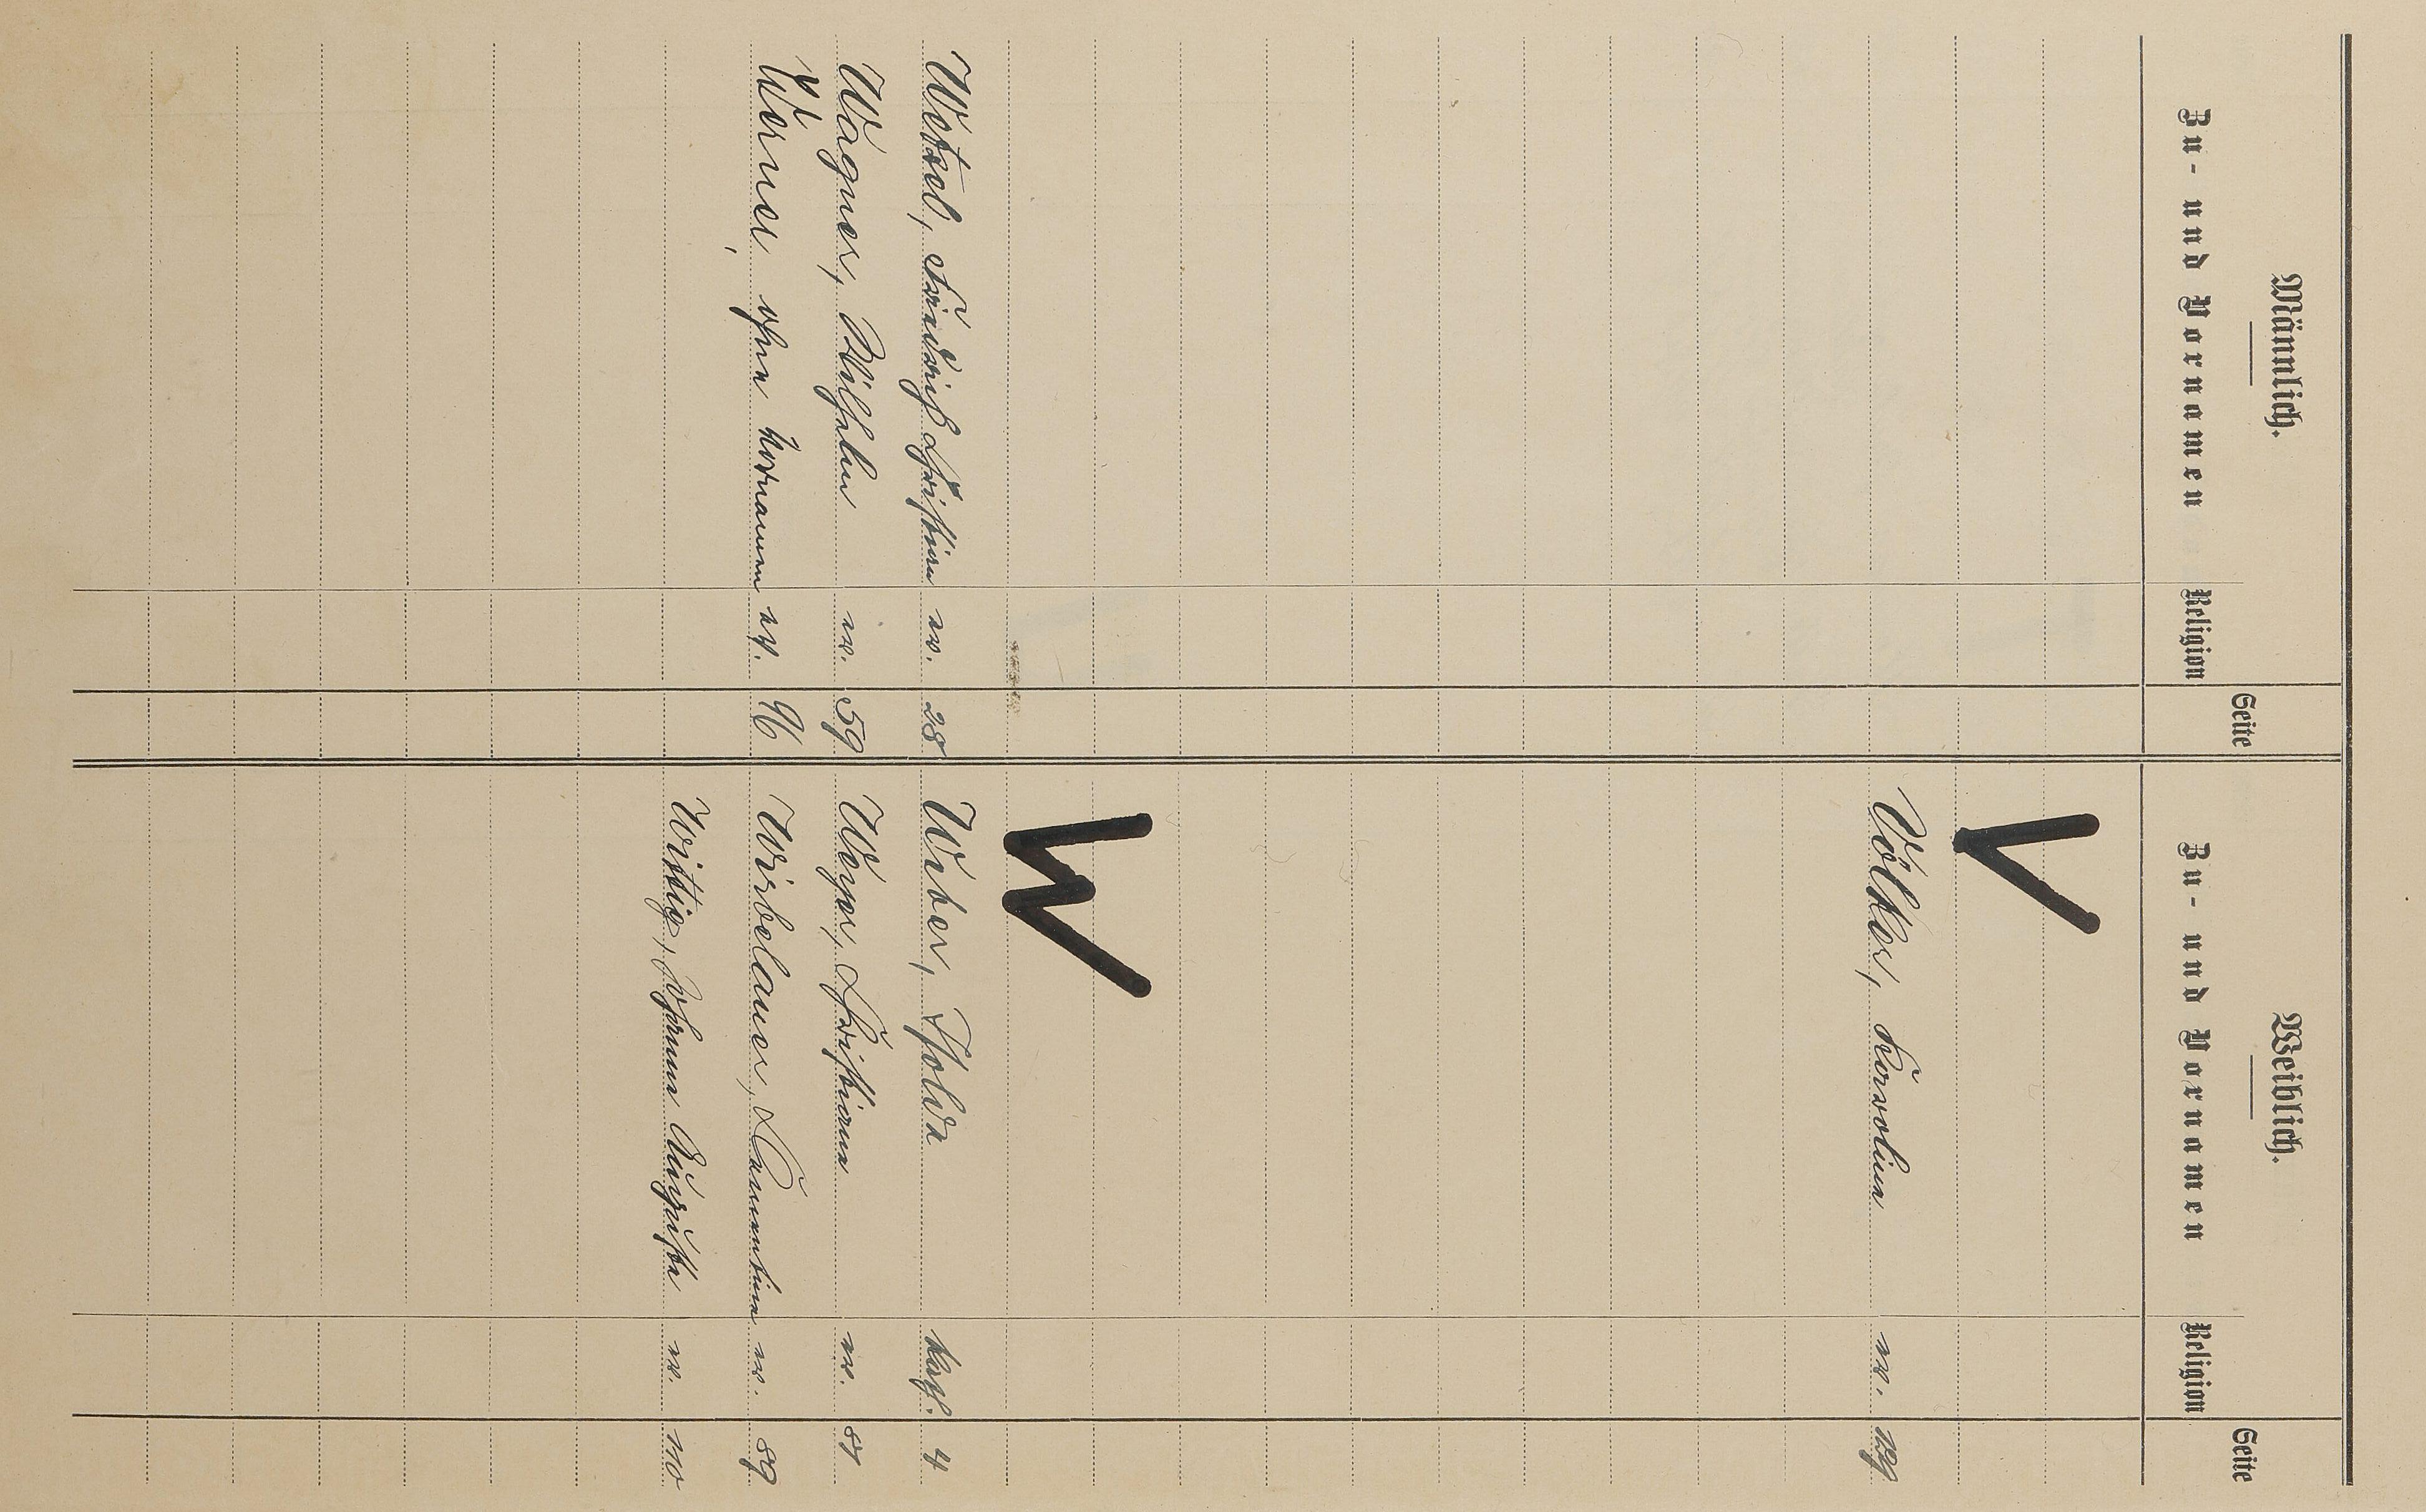 Männlich. Weiblich.
Zu- und Vornamen Religion Seite Zu- und Vornamen Religion Seite
V
Völker, Karoline ev. 129
W
Wetzel, Friedrich Christian ev. 28 Weber, Isolde kath. 4
Wagner, Wilhelm ev. 59 Weyer, Christiane ev. 81
Werner, ohne Vornamen ev. 96 Wirbelauer, Clementine ev. 89
Wittig, Johanna Auguste ev. 110